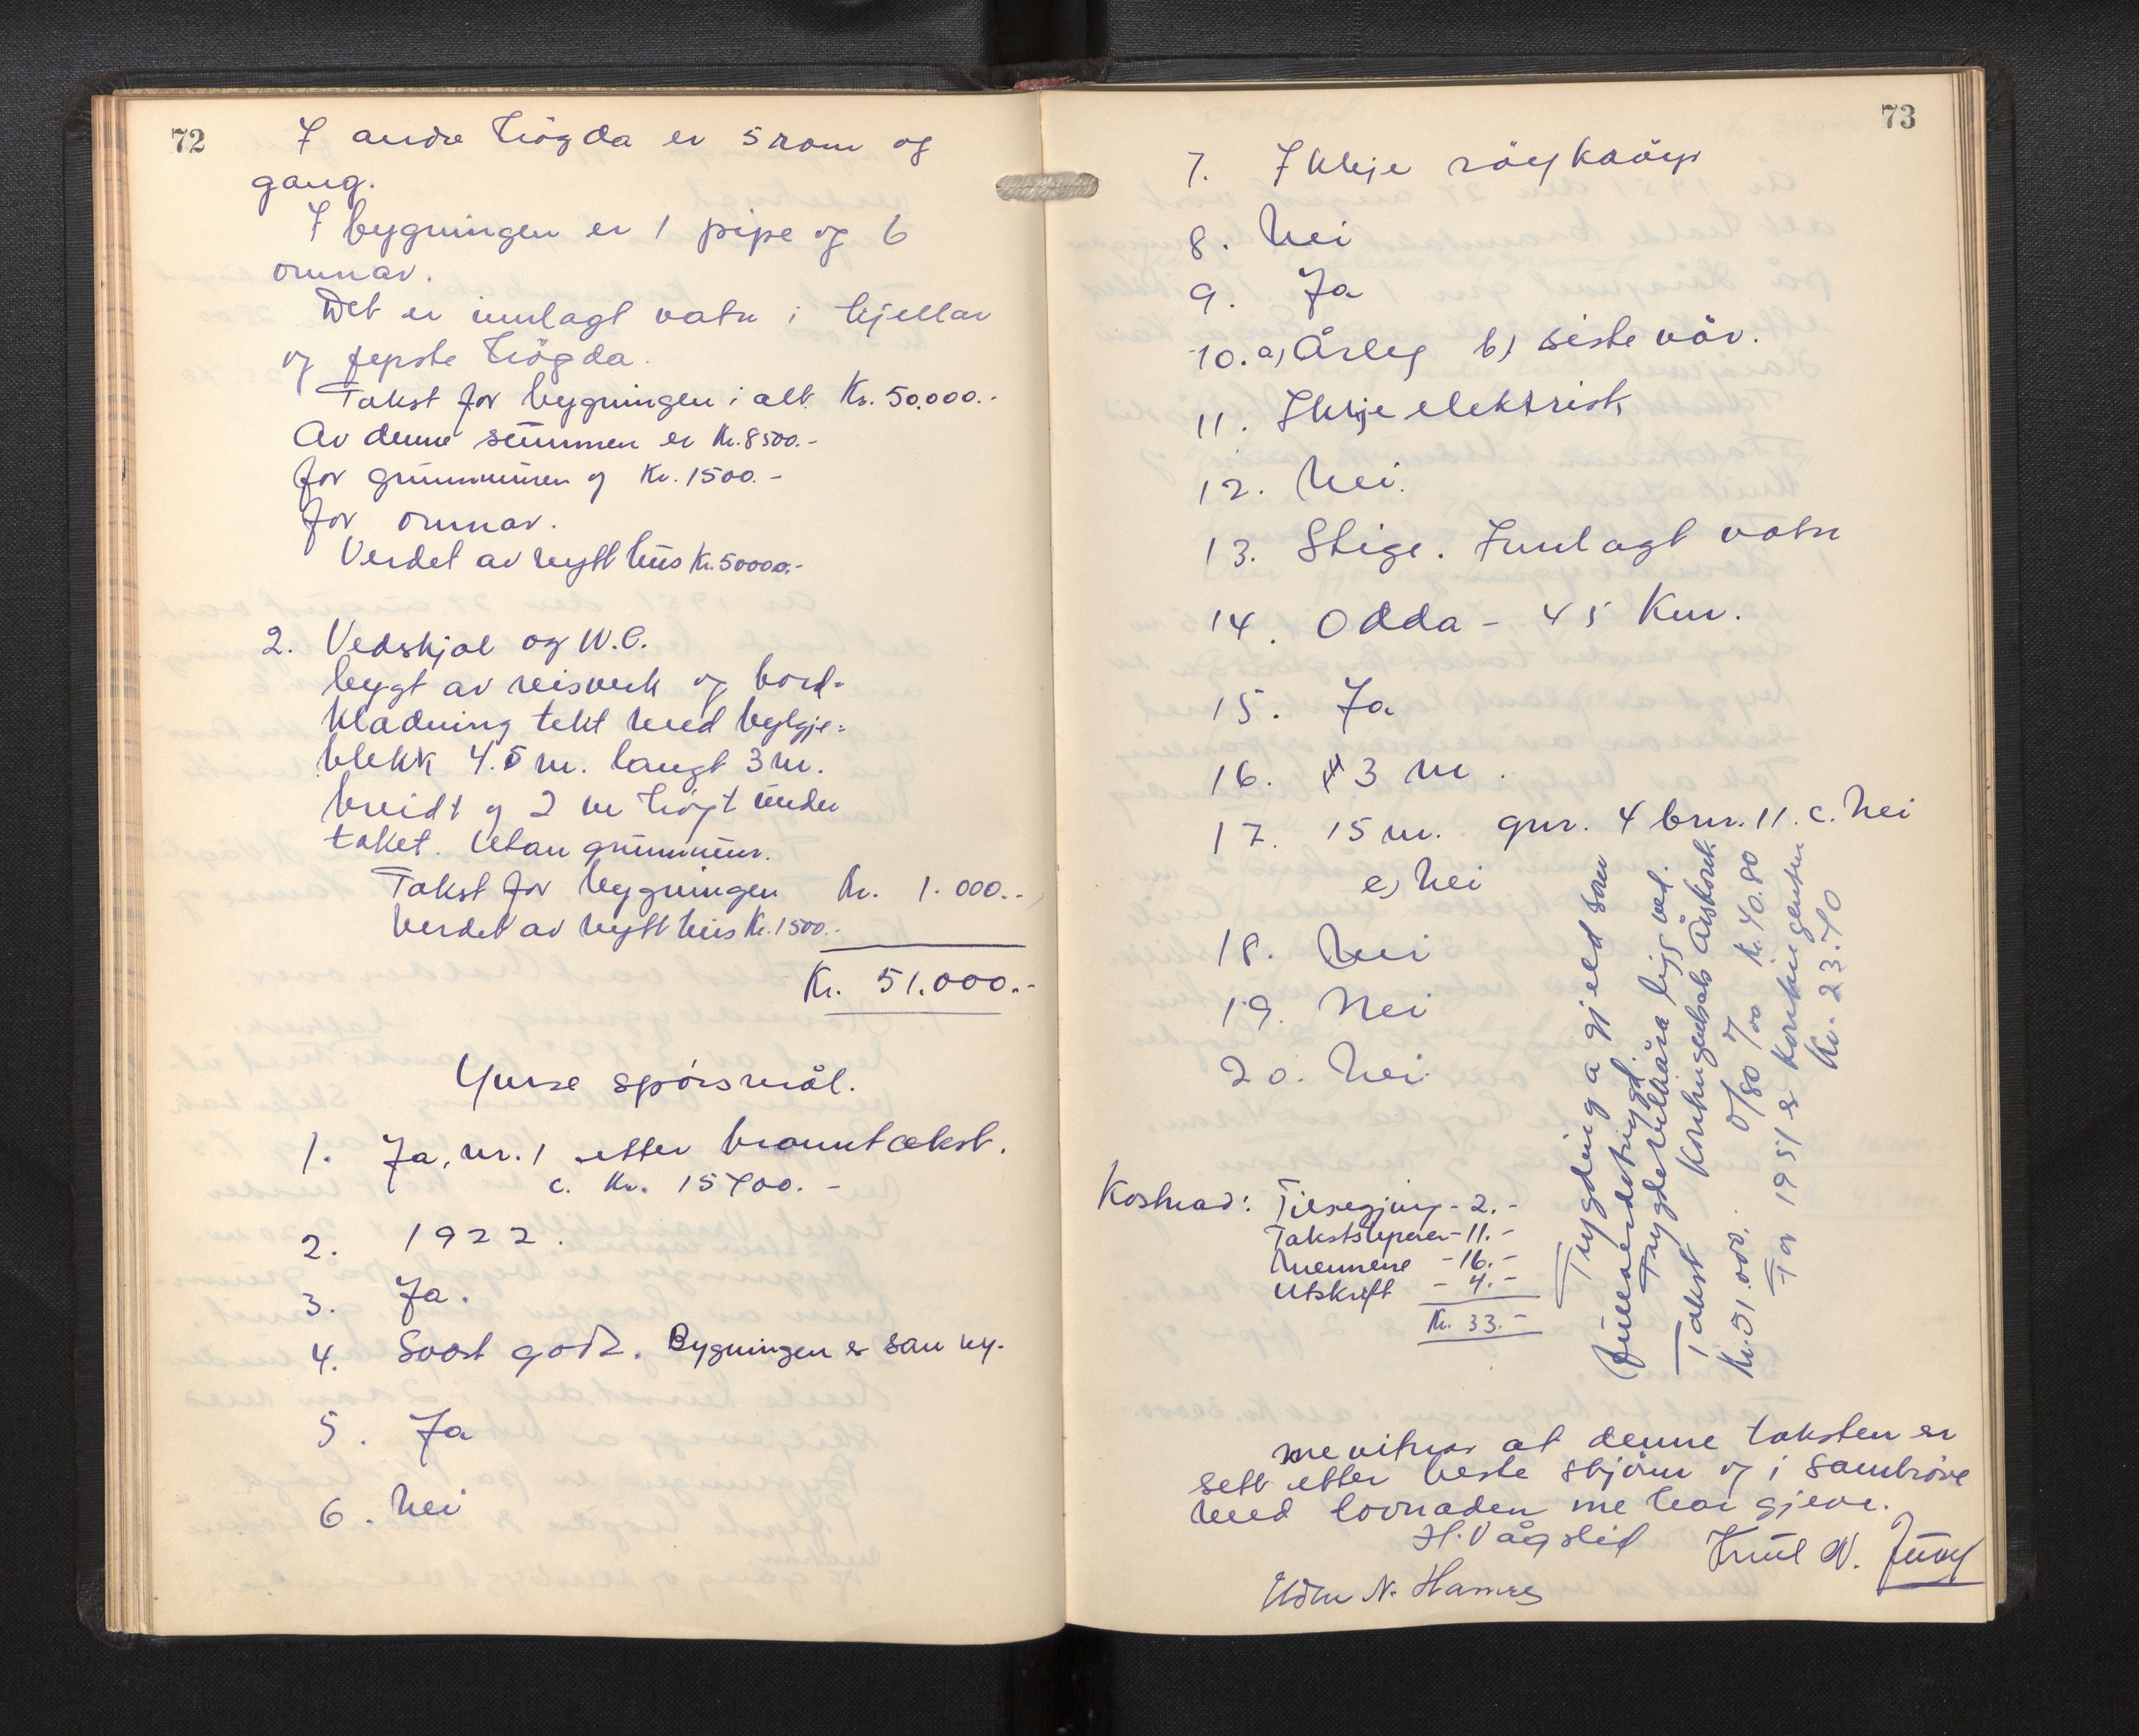 72
I andre högda er 5 rom og
gang.
I bygningen er 1 pipe og 6
omnar.
Det er innlagt vatn i kjellar
og fyrste högda.
Takst for bygningen i alt Kr. 50.000.-
Av denne summen er Kr. 8500.-
for grunnmuren og Kr. 1500.-
for omnar.
Verdet av nytt hus Kr. 50000.-
2. Vedskjol og W.C.
bygt av reisverk og bord-
kladning tekt med bylgje-
blekk 4.5 m. langt 3 m.
breidt og 2 m högt under
taket. Utan grunnmur.
Takst for bygningen Kr. 1.000.-
Verdet av nytt hus Kr. 1500.-
Kr. 51.000.-
Ymse spörsmål.
1. Ja, nr. 1 etter branntakst.
c. Kr. 15700.-
2. 1922.
3. Ja.
4. Svært godt. Bygningen er som ny.
5. Ja
6. Nei
73
7. Ikkje röykaöyr
8. Nei
9. Ja
10. a) Årleg b) siste vår.
11. Ikkje elektrisk
12. Nei.
13. Stige. Innlagt vatn
14. Odda - 45 Km.
15. Ja
16. 3 m.
17. 15 m. gnr. 4 bnr. 11. c. Nei
e) Nei
18. Nei
19. Nei
20. Nei
Trygding a gjeld som
fulldendetrygd.
Trygdevilkåra ligg ved.
Takst Kontingentsats Årskont.
Kr. 51.000.- 0/80 ‰ Kr. 40.80
For 1951 er kontingenten
Kr. 23.70
Kostnad: Tilsegjing - 2.-
Takststyrar - 11.-
Mennene - 16.-
Utskrift - 4.-
Kr. 33.-
Me vitnar at denne taksten er
sett etter beste skjönn og i samhöve
med lovnaden me har gjeve.
H. Vågslid Knut N. Juvf
N. Hamre